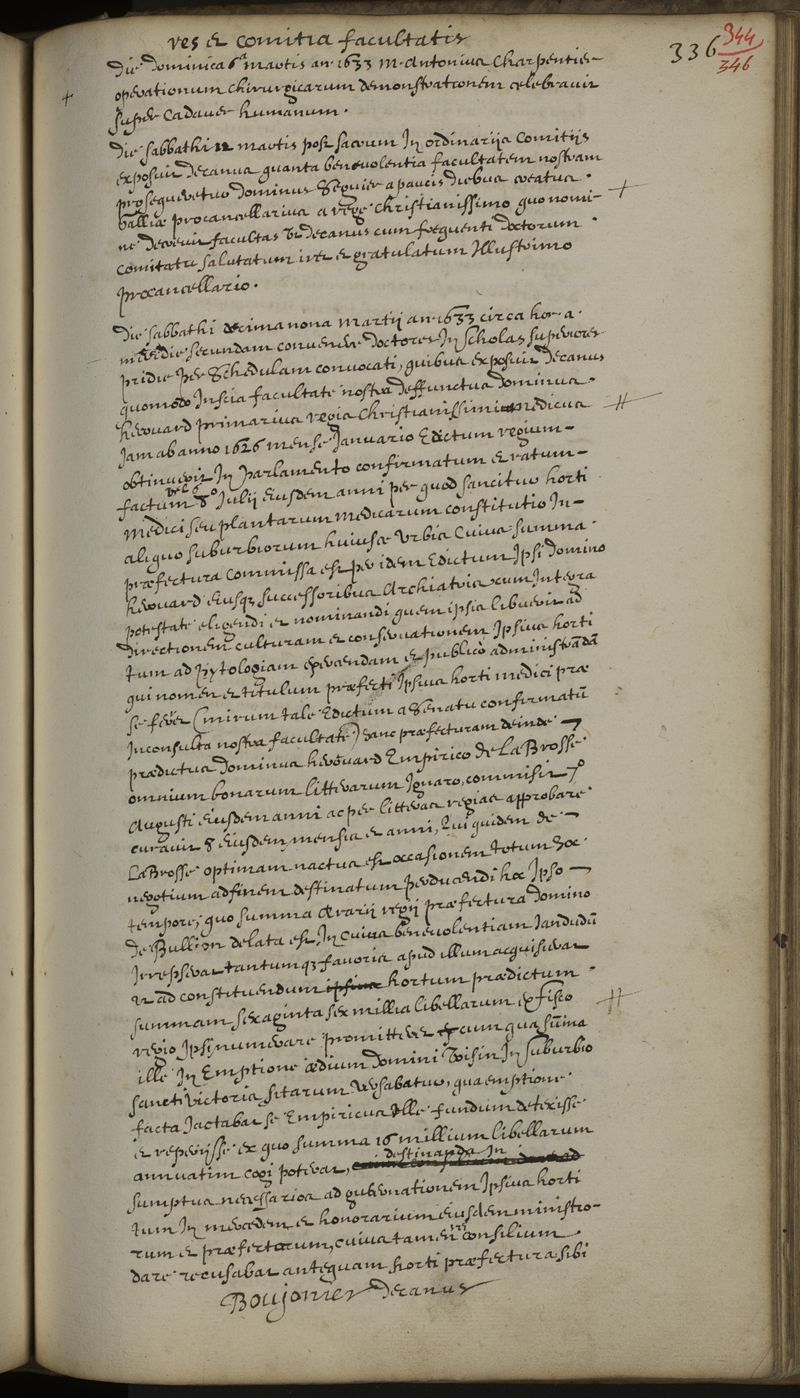 res et comitia facultatis
336 344
346
Die dominica 6a martis an 1633 M. Antonius Charpentier
operationum chirurgicarum demonstrationem celebravit
super cadaver humanum.
Die sabbathi 12 martis post sacrum In ordinariis Comitiis
exposuit decanus quanta benevolentia facultatem nostram
prosequeretur dominus Seguier a paucis diebus creatus
Galliæ procancellarius a rege Christianissimo quo nomi-
ne decrevit facultas ut decanus cum frequenti doctorum
comitatu salutatum iret et gratulatum Illustrimo
procancellario.
Die sabbathi decima nona martii an 1633 circa hor a
meridie secundam convenere doctores In scholas superiores
pridie per Schedulam convocati, quibus exposuit decanus
quomodo Inscia facultate nostra deffunctus dominus
herouard primarius regis Christianissimi medicus
Jam ab anno 1626 mense Januario Edictum regium
obtinuerit In parlamento confirmatum et ratum
factum 8o Julii eiusdem anni per quod sancitur horti
medici seu plantarum medicarum constitutio In
aliquo suburbiorum huiusce urbis Cuius summa
præfectura commissa est per idem Edictum Ipsi domino
herouard eiusq; successoribus Archiatris cum Integra
potestate eligendi et nominandi quem ipsis libuerit ad
directionem culturam et conservationem Ipsius horti
tum ad phytologiam exercendam et publice administrandā
qui nomen et titulum præfecti Ipsius horti medici præ
se feret (mirum tale Edictum a Senatu confirmatū
Inconsulta nostra facultate) hanc præfecturam deinde
prædictus dominus herouard Empirico De La Brosse
omnium bonarum litterarum Ignaro, commisit 7o
Augusti eiusdem anni ac per litteras regias approbare
curavit 8 eiusdem mensis et anni, Qui quidem de
La Brosse optimam nactus est occasionem totum hoc
negotium ad finem destinatum perducendi hoc Ipso
tempore, quo summa Ærarii regii præfectura domino
de Bullion delata est, In cuius benevolentiam Jandudū
Irrepserat tantumq; favoris apud illum acquisierat
ut ad constituendum ipsius hortum prædictum
summam sexaginta sex millia libellarum ex fisco
regio Ipsi numerare promitteret cum qua sūma
ille In Emptione ædium domini Voisin In suburbio
sancti victoris sitarum versabatur, qua emptione
facta Jactabat se Empiricus Ille fundum detexisse
et reperiisse ex quo summa 16 millium libellarum
annuatim cogi poterat, destinanda In
sumptus necessarios ad gubernationem Ipsius horti
tum In mercedem et honorarium eiusdem ministro-
rum et præfectorum, cuius tamen consilium
dare recusabat antequam horti præfectura sibi
Boujonier decanus